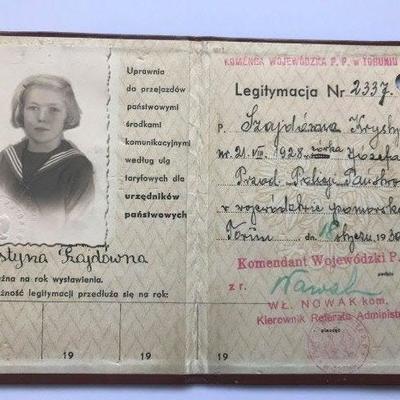 Uprawnia
do przejazdów
państwowymi
środkami
komunikacyjnymi
według ulg
taryfowych dla
urzędników
państwowych
styna Szajdówna
żna na rok wystawienia.
żność legitymacji przedłuża się na rok:
19 19 19
KOMENDA WOJEWÓDZKA P. P. w TORUNIU
Legitymacja Nr 2337
P. Szajdówna Krysty
ur. 21. VII. 1928 córka Józefa
Przod. Policji Państwo
w województwie pomorski
Toruń dn. 18 stycz 193
Komendant Wojewódzki P.
z r. Nowak
podpis
WŁ. NOWAK kom.
Kierownik Referatu Administr
pieczęć